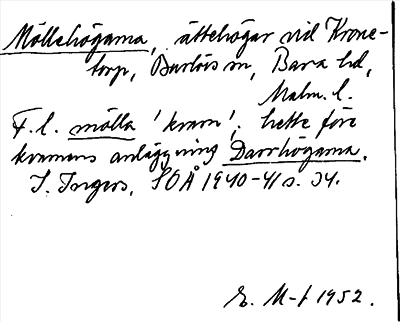 Möllehögarna, ättehögar vid Krone-
torp, Burlövs sn, Bara hd,
Malm. l.
F. l. mölla 'kvarn'; hette före
kvarnens anläggning Darrhögarna.
I. Ingers, SOÅ 1940-41 s. 34.
E. M-f 1952.